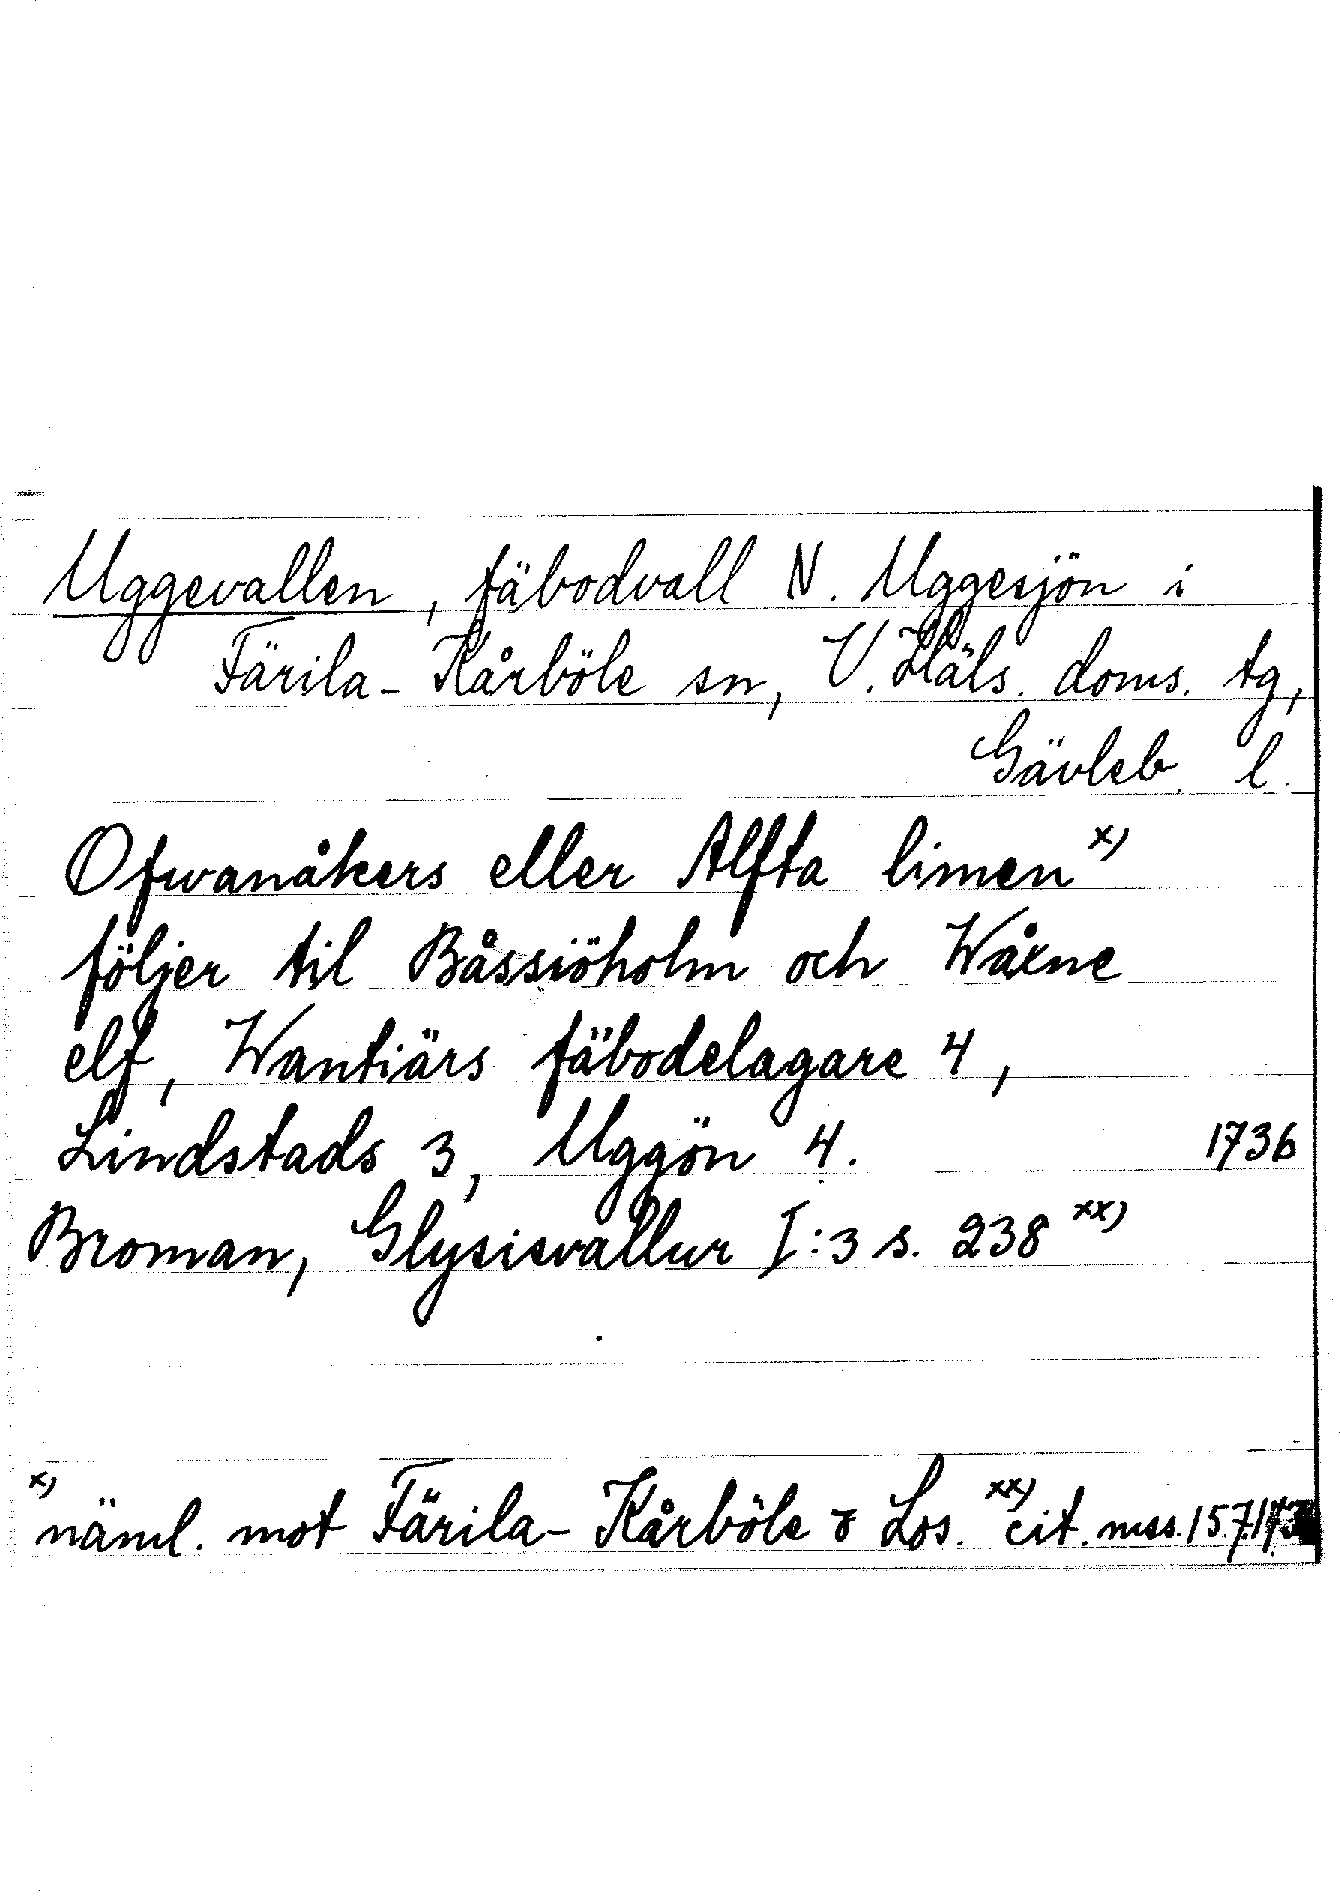 Uggevallen, fäbodvall N. Uggesjön i
Färila-Kårböle sn, V. Häls. doms. tg,
Gävleb. l.
Ofwanåkers eller Alfta limen x)
följer til Båssiöholm och Wåxne
elf, Wantiärs fäbodelagare 4,
Lindstads 3, Uggön 4. 1736
Broman, Glysisvallur I:3 s. 238 xx)
x) näml. mot Färila-Kårböle o Los. xx) cit. mss. 157.